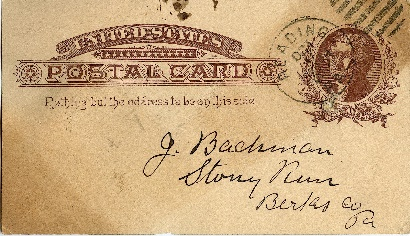 UNITED STATES
POSTAL CARD
Nothing but the address to be on this side
READING
J. Bachman
Stony Run
Berks Co
Pa